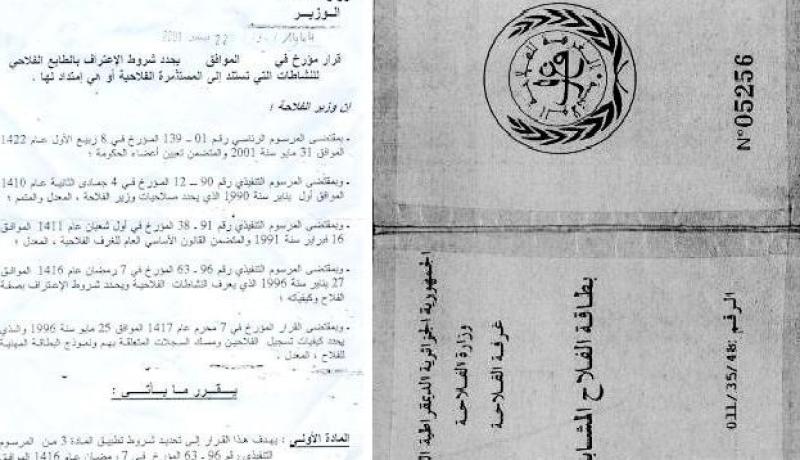 الـوزيـر
22 2001
قرار مؤرخ في الموافق يحدد شروط الإعتراف بالطابع الفلاحي
للنشاطات التي تستند إلى المستثمرة الفلاحية أو هي إمتداد لها .
إن وزير الفلاحة ؛
- بمقتضى المرسوم الرئاسي رقم 01 – 139 المؤرخ في 8 ربيع الأول عام 1422
الموافق 31 مايو سنة 2001 والمتضمن تعيين أعضاء الحكومة ؛
- وبمقتضى المرسوم التنفيذي رقم 90 – 12 المؤرخ في 4 جمادى الثانية عام 1410
الموافق أول يناير سنة 1990 الذي يحدد صلاحيات وزير الفلاحة ، المعدل والمتمم ؛
- وبمقتضى المرسوم التنفيذي رقم 91 - 38 المؤرخ في أول شعبان عام 1411 الموافق
16 فبراير سنة 1991 والمتضمن القانون الأساسي العام للغرف الفلاحية ، المعدل ؛
- وبمقتضى المرسوم التنفيذي رقم 96 - 63 المؤرخ في 7 رمضان عام 1416 الموافق
27 يناير سنة 1996 الذي يعرف النشاطات الفلاحية ويحدد شروط الإعتراف بصفة
الفلاح وكيفياته ؛
- وبمقتضى القرار المؤرخ في 7 محرم عام 1417 الموافق 25 مايو سنة 1996 والذي
يحدد كيفيات تسجيل الفلاحين ومسك السجلات المتعلقة بهم ونموذج البطاقة المهنية
للفلاح ، المعدل .
يـقـرر مـا يـأتـي :
المادة الأولى : يهدف هذا القرار إلى تحديد شروط تطبيق المادة 3 من المرسوم
التنفيذي رقم 96 - 63 المؤرخ في 7 رمضان عام 1416 الموافق
N°05256
الجمهورية الجزائرية الديمقراطية
وزارة الفلاحة
غرفة الفلاحة
بطاقة الفلاح
الرقم :011/35/48